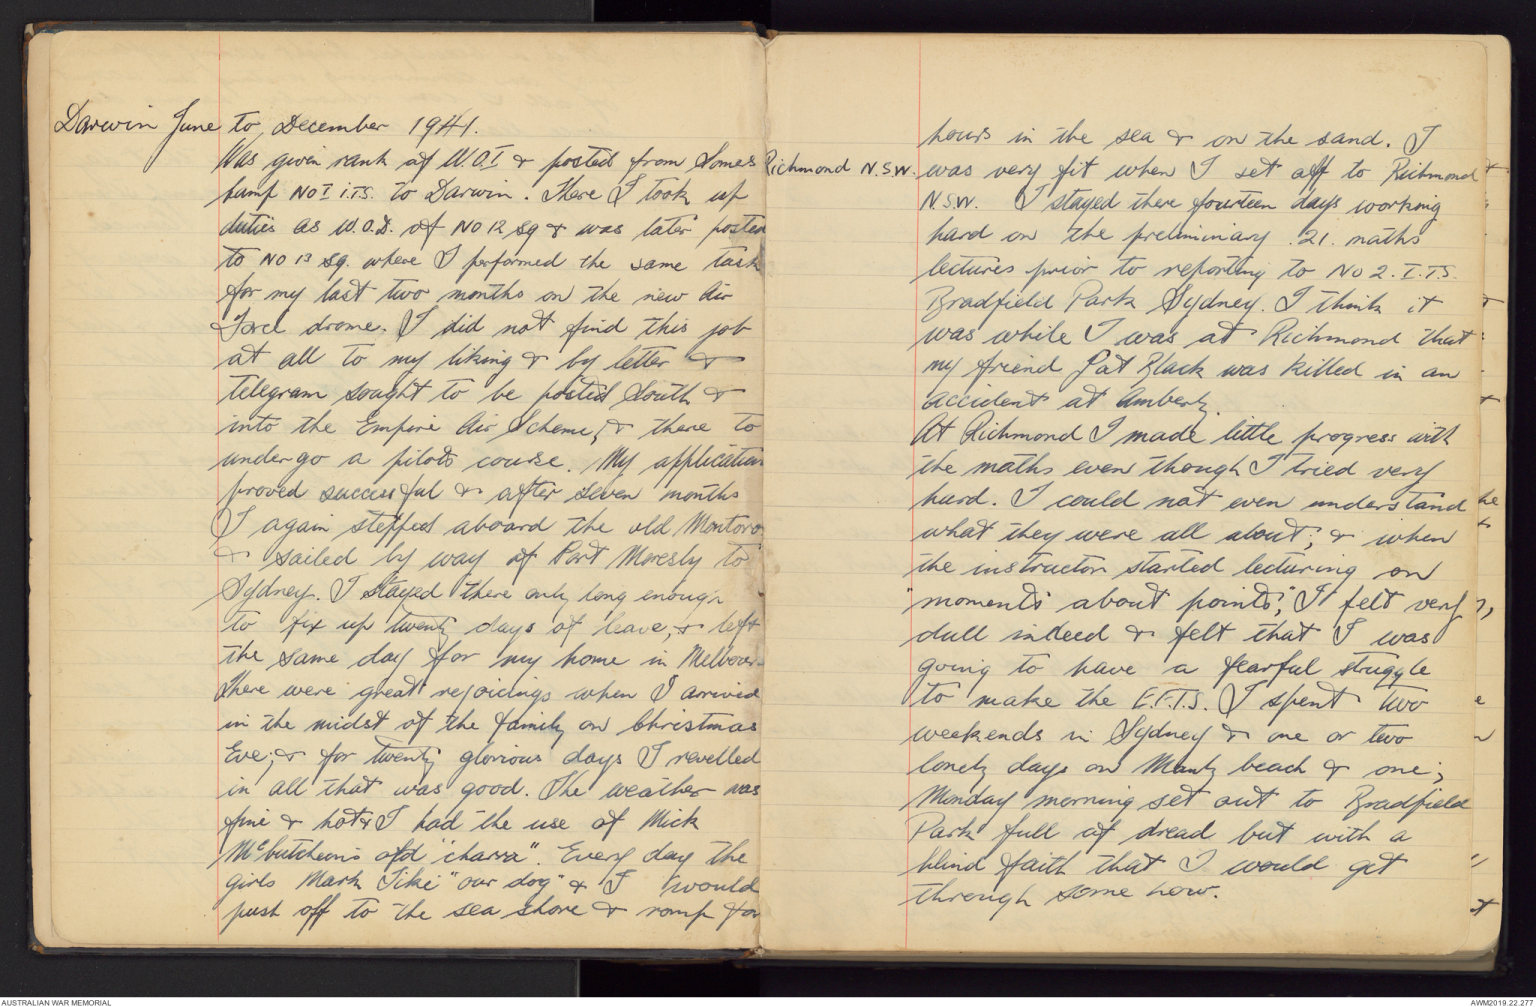 Darwin June to, December 1941.
Was given rank of W.O.I & posted from Somers
Camp NO I I.T.S. to Darwin. There I took up
duties as W.O.D. of NO 12 sq & was later posted
to NO 13 sq. where I performed the same task
for my last two months on the new Air
Force drome. I did not find this job
at all to my liking & by letter &
telegram sought to be posted South &
into the Empire Air Scheme, & there to
undergo a pilots course. My application
proved successful & after seven months
I again stepped aboard the old Montoro
& sailed by way of Port Moresby to
Sydney. I stayed there only long enough
to fix up twenty days of leave, & left
the same day for my home in Melbour-
There were great rejoicings when I arrived
in the midst of the family on Christmas
Eve; & for twenty glorious days I revelled
in all that was good. The weather was
fine & hot & I had the use of Mick
McCutcheon's old "charra". Every day the
girls Mark Tiki "our dog" & I would
push off to the sea shore & romp for
hours in the sea & on the sand. I
Richmond N.S.W. was very fit when I set off to Richmond
N.S.W. I stayed there fourteen days working
hard on the preliminary .21. maths
lectures prior to reporting to NO 2. I.T.S.
Bradfield Park Sydney. I think it
was while I was at Richmond that
my friend Pat Black was killed in an
accident at Amberly.
At Richmond I made little progress with
the maths even though I tried very
hard. I could not even understand
what they were all about; & when
the instructor started lecturing on
"moments about points", I felt very
dull indeed & felt that I was
going to have a fearful struggle
to make the E.F.T.S. I spent two
weekends in Sydney & one or two
lonely days on Manly beach & one;
Monday morning set out to Bradfield
Park full of dread but with a
blind faith that I would get
through some how.
AUSTRALIAN WAR MEMORIAL
AWM2019.22.277